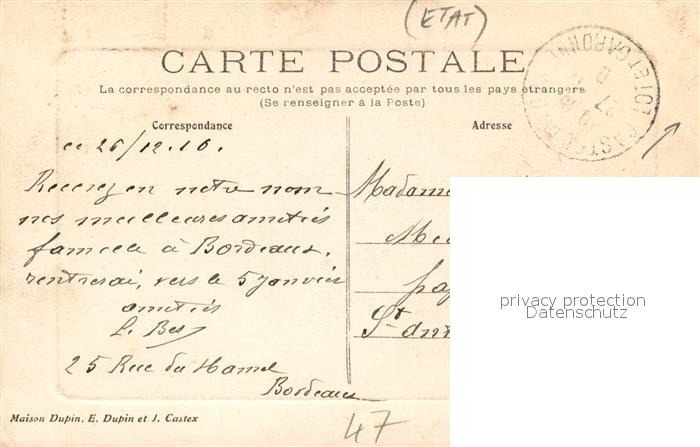 (ETAT)
CARTE POSTALE
La correspondance au recto n'est pas acceptée par tous les pays étrangers
(Se renseigner à la Poste)
Correspondance
Adresse
ce 26/12.10.
Recevez en notre nom
nos meilleures amitiés
famille à Bordeaux.
rentrerai, vers le 5 Janvier
amitiés
25 Rue du Hamel
Bordeaux
Madame
St
privacy protection
Datenschutz
Maison Dupin, E. Dupin et J. Castex
47